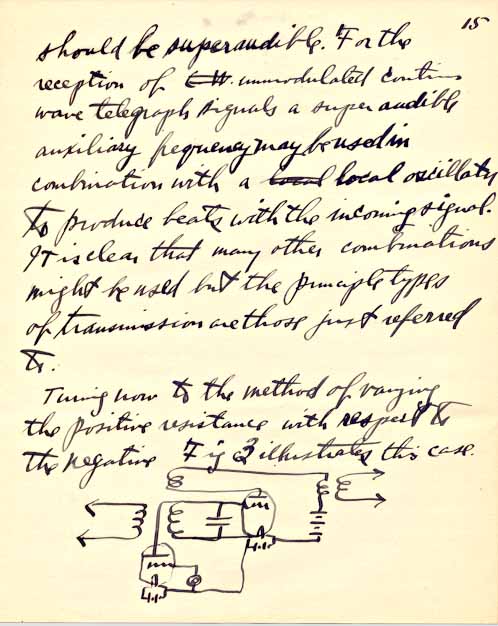 15
should be superaudible. For the
reception of C.W. unmodulated contin
wave telegraph signals a super audible
auxiliary frequency may be used in
combination with a local local oscillator
to produce beats with the incoming signal.
It is clear that many other combinations
might be used but the principle types
of transmission are those just referred
to.
Turing now to the method of varying
the positive resistance with respect to
the negative Fig 3 illustrates this case.